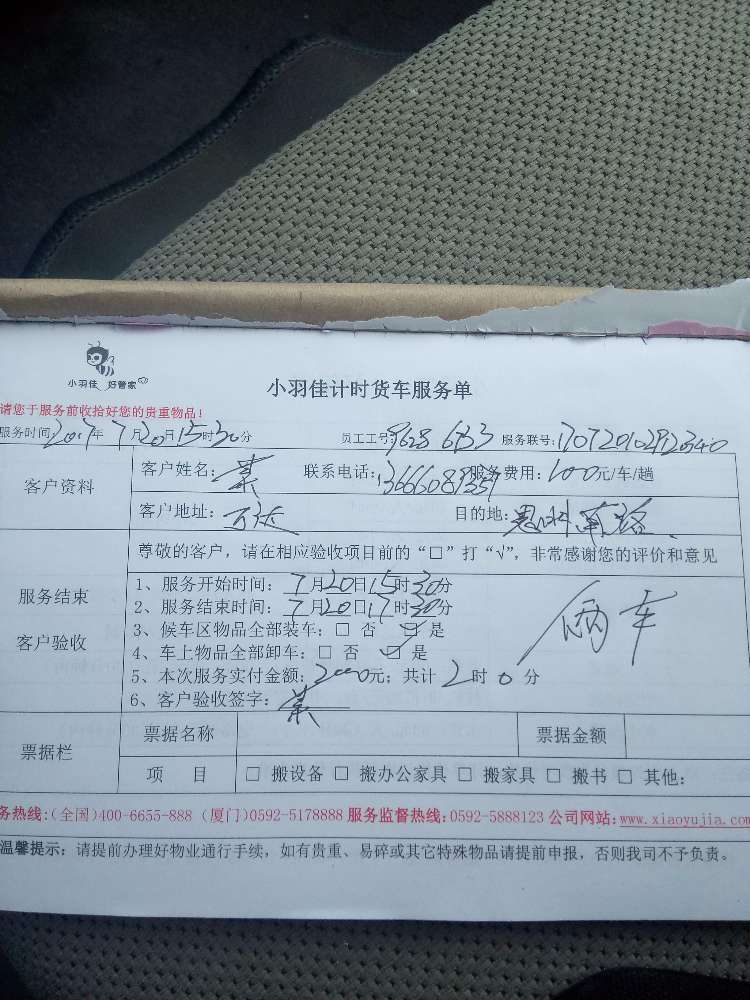 小羽佳 好管家
小羽佳计时货车服务单
请您于服务前收拾好您的贵重物品！
服务时间：2017年7月20日15时30分 员工工号：9628 633 服务联号：
客户资料
客户姓名： 联系电话： 服务费用：100元/车/趟
客户地址：万达 目的地：思明南路
服务结束
客户验收
尊敬的客户，请在相应验收项目前的“□”打“√”，非常感谢您的评价和意见
1、服务开始时间：7月20日15时30分
2、服务结束时间：7月20日17时30分
3、候车区物品全部装车：□ 否 ☑ 是
4、车上物品全部卸车：□ 否 ☑ 是
5、本次服务实付金额：元；共计2时0分
6、客户验收签字：
俩车
票据栏
票据名称 票据金额
项 目 □ 搬设备 □ 搬办公家具 □ 搬家具 □ 搬书 □ 其他：
务热线：(全国)400-6655-888 (厦门)0592-5178888 服务监督热线：0592-5888123 公司网站：www.xiaoyujia.com
温馨提示：请提前办理好物业通行手续，如有贵重、易碎或其它特殊物品请提前申报，否则我司不予负责。